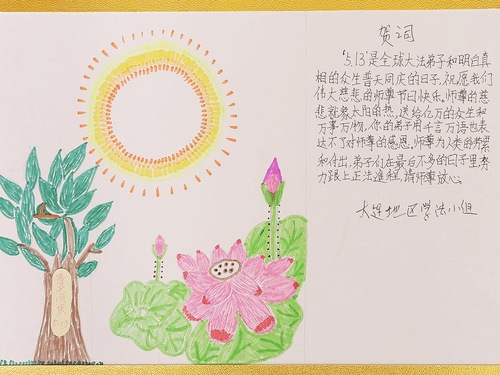 贺词
"5.13"是全球大法弟子和明白真
相的众生普天同庆的日子,祝愿我们
伟大慈悲的师尊节日快乐。师尊的慈
悲就象太阳的热,送给亿万的众生和
万事万物,你的弟子用千言万语也表
达不了对师尊的感恩。师尊为人类的劳累
和付出,弟子们在最后不多的日子里努
力跟上正法進程,请师尊放心。
大连地区学法小组